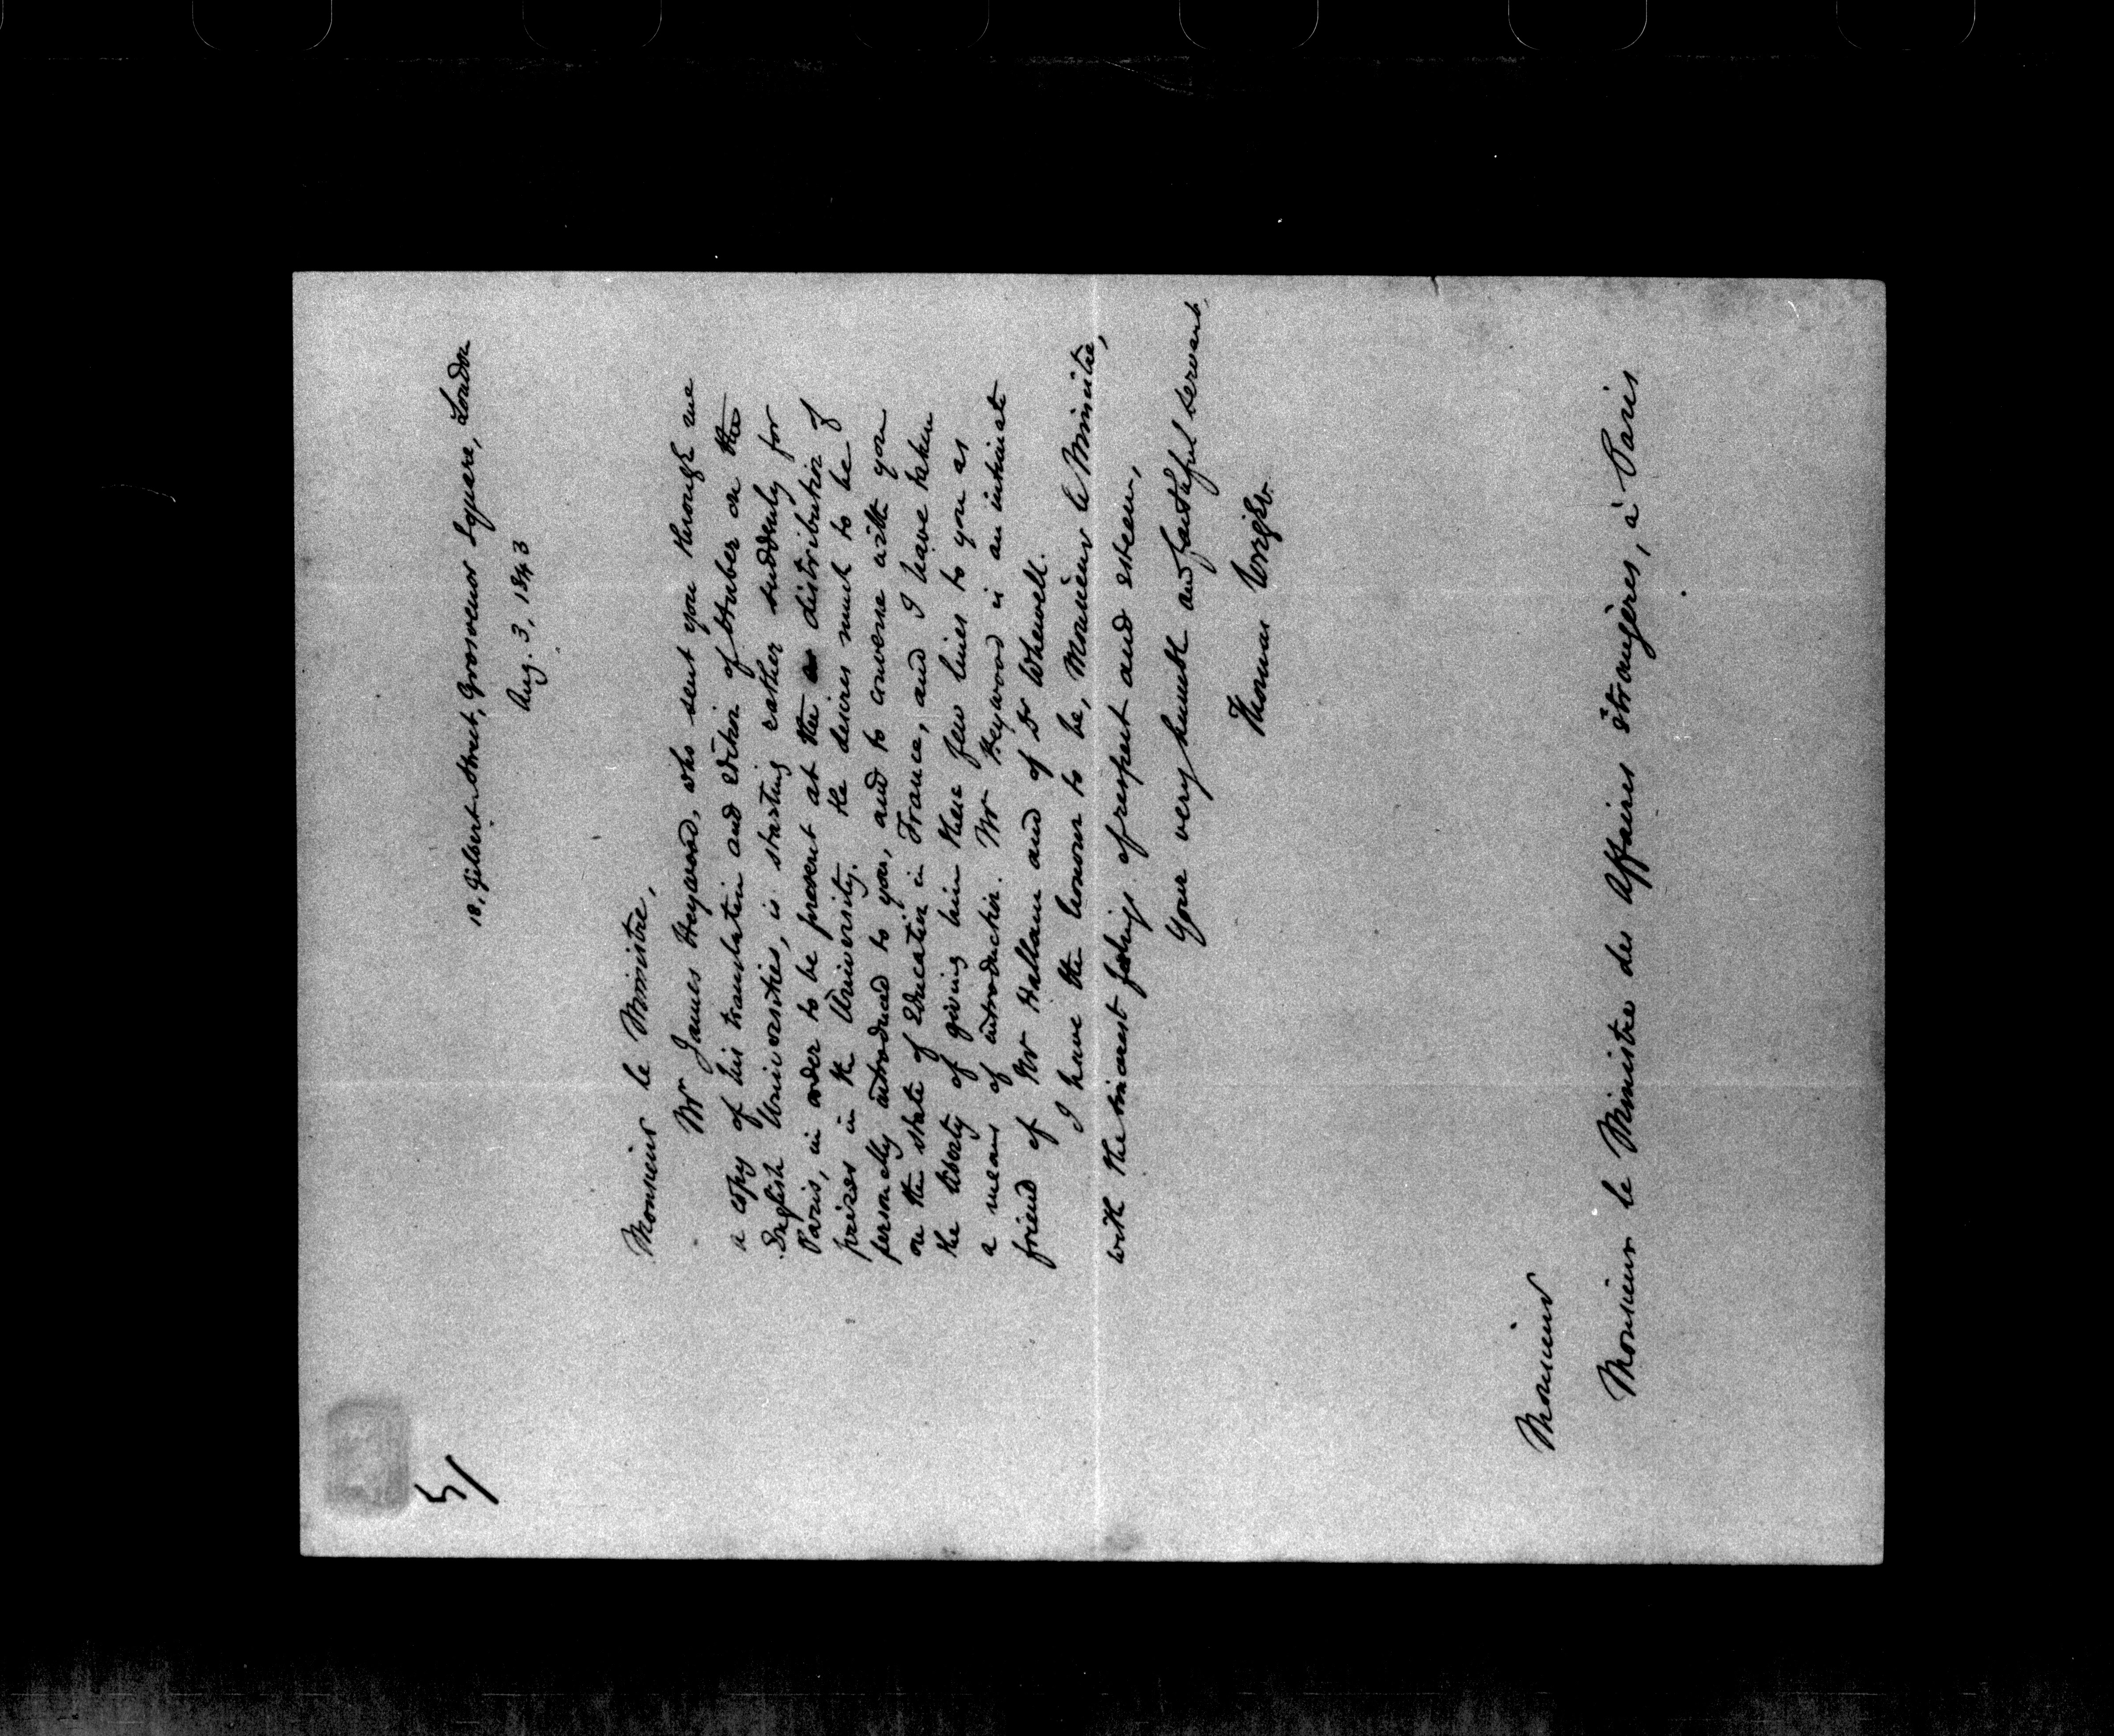 51
18, Gilbert Street, Grosvenor Square, London
Aug. 3, 1843
Monsieur le Ministre,
Mr James Heywood, who sent you through me
a copy of his translation and edition of Huber on the
English Universities, is starting rather suddenly for
Paris, in order to be present at the distribution of
prizes in the University. He desires much to be
personally introduced to you, and to converse with you
on the state of Education in France, and I have taken
the liberty of giving him these few lines to you as
a means of introduction. Mr Heywood is an intimate
friend of Mr Hallam and of Dr Whewell.
I have the honour to be, Monsieur le Ministre,
with the sincerest feelings of respect and esteem,
Your very humble and faithful servant
Thomas Wright.
Monsieur
Monsieur le Ministre des Affaires étrangères, à Paris